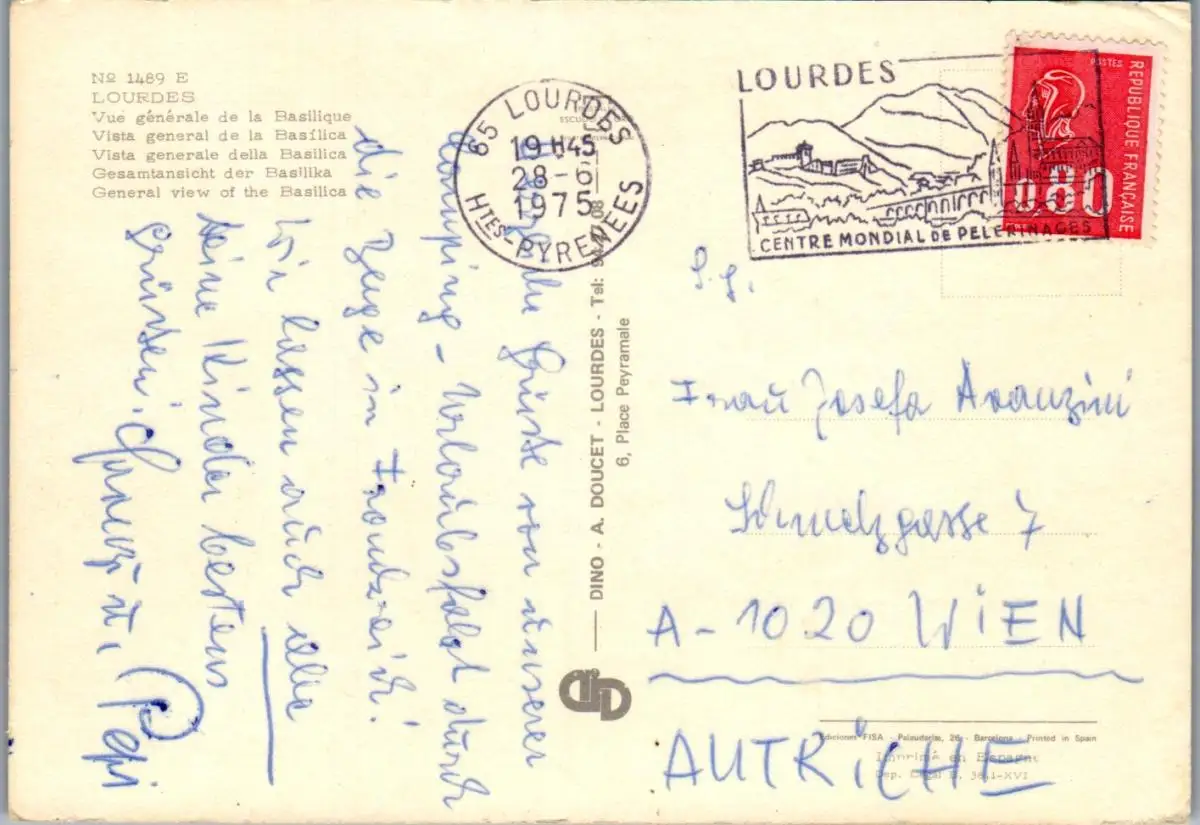 Nº 1489 E
LOURDES
Vue générale de la Basilique
Vista general de la Basílica
Vista generale della Basilica
Gesamtansicht der Basilika
General view of the Basilica
65 LOURDES
19 H45
28-6
1975
HTES-PYRENEES
LOURDES
CENTRE MONDIAL DE PELERINAGES
POSTES
REPUBLIQUE FRANÇAISE
0,80
Grüsse von unserer
Camping - Urlaubsfahrt durch
die Berge in Frankreich!
Wir lassen auch alle
deine Kinder bestens
grüssen. Franzi u. Pepi
DINO - A. DOUCET - LOURDES - Tel: 94 08
6, Place Peyramale
S.g.
Frau Josefa Avanzini
Schmelzgasse 7
A-1020 WIEN
AUTRICHE
Ediciones FISA - Palaudarias, 26 - Barcelona - Printed in Spain
Imprimé en Espagne